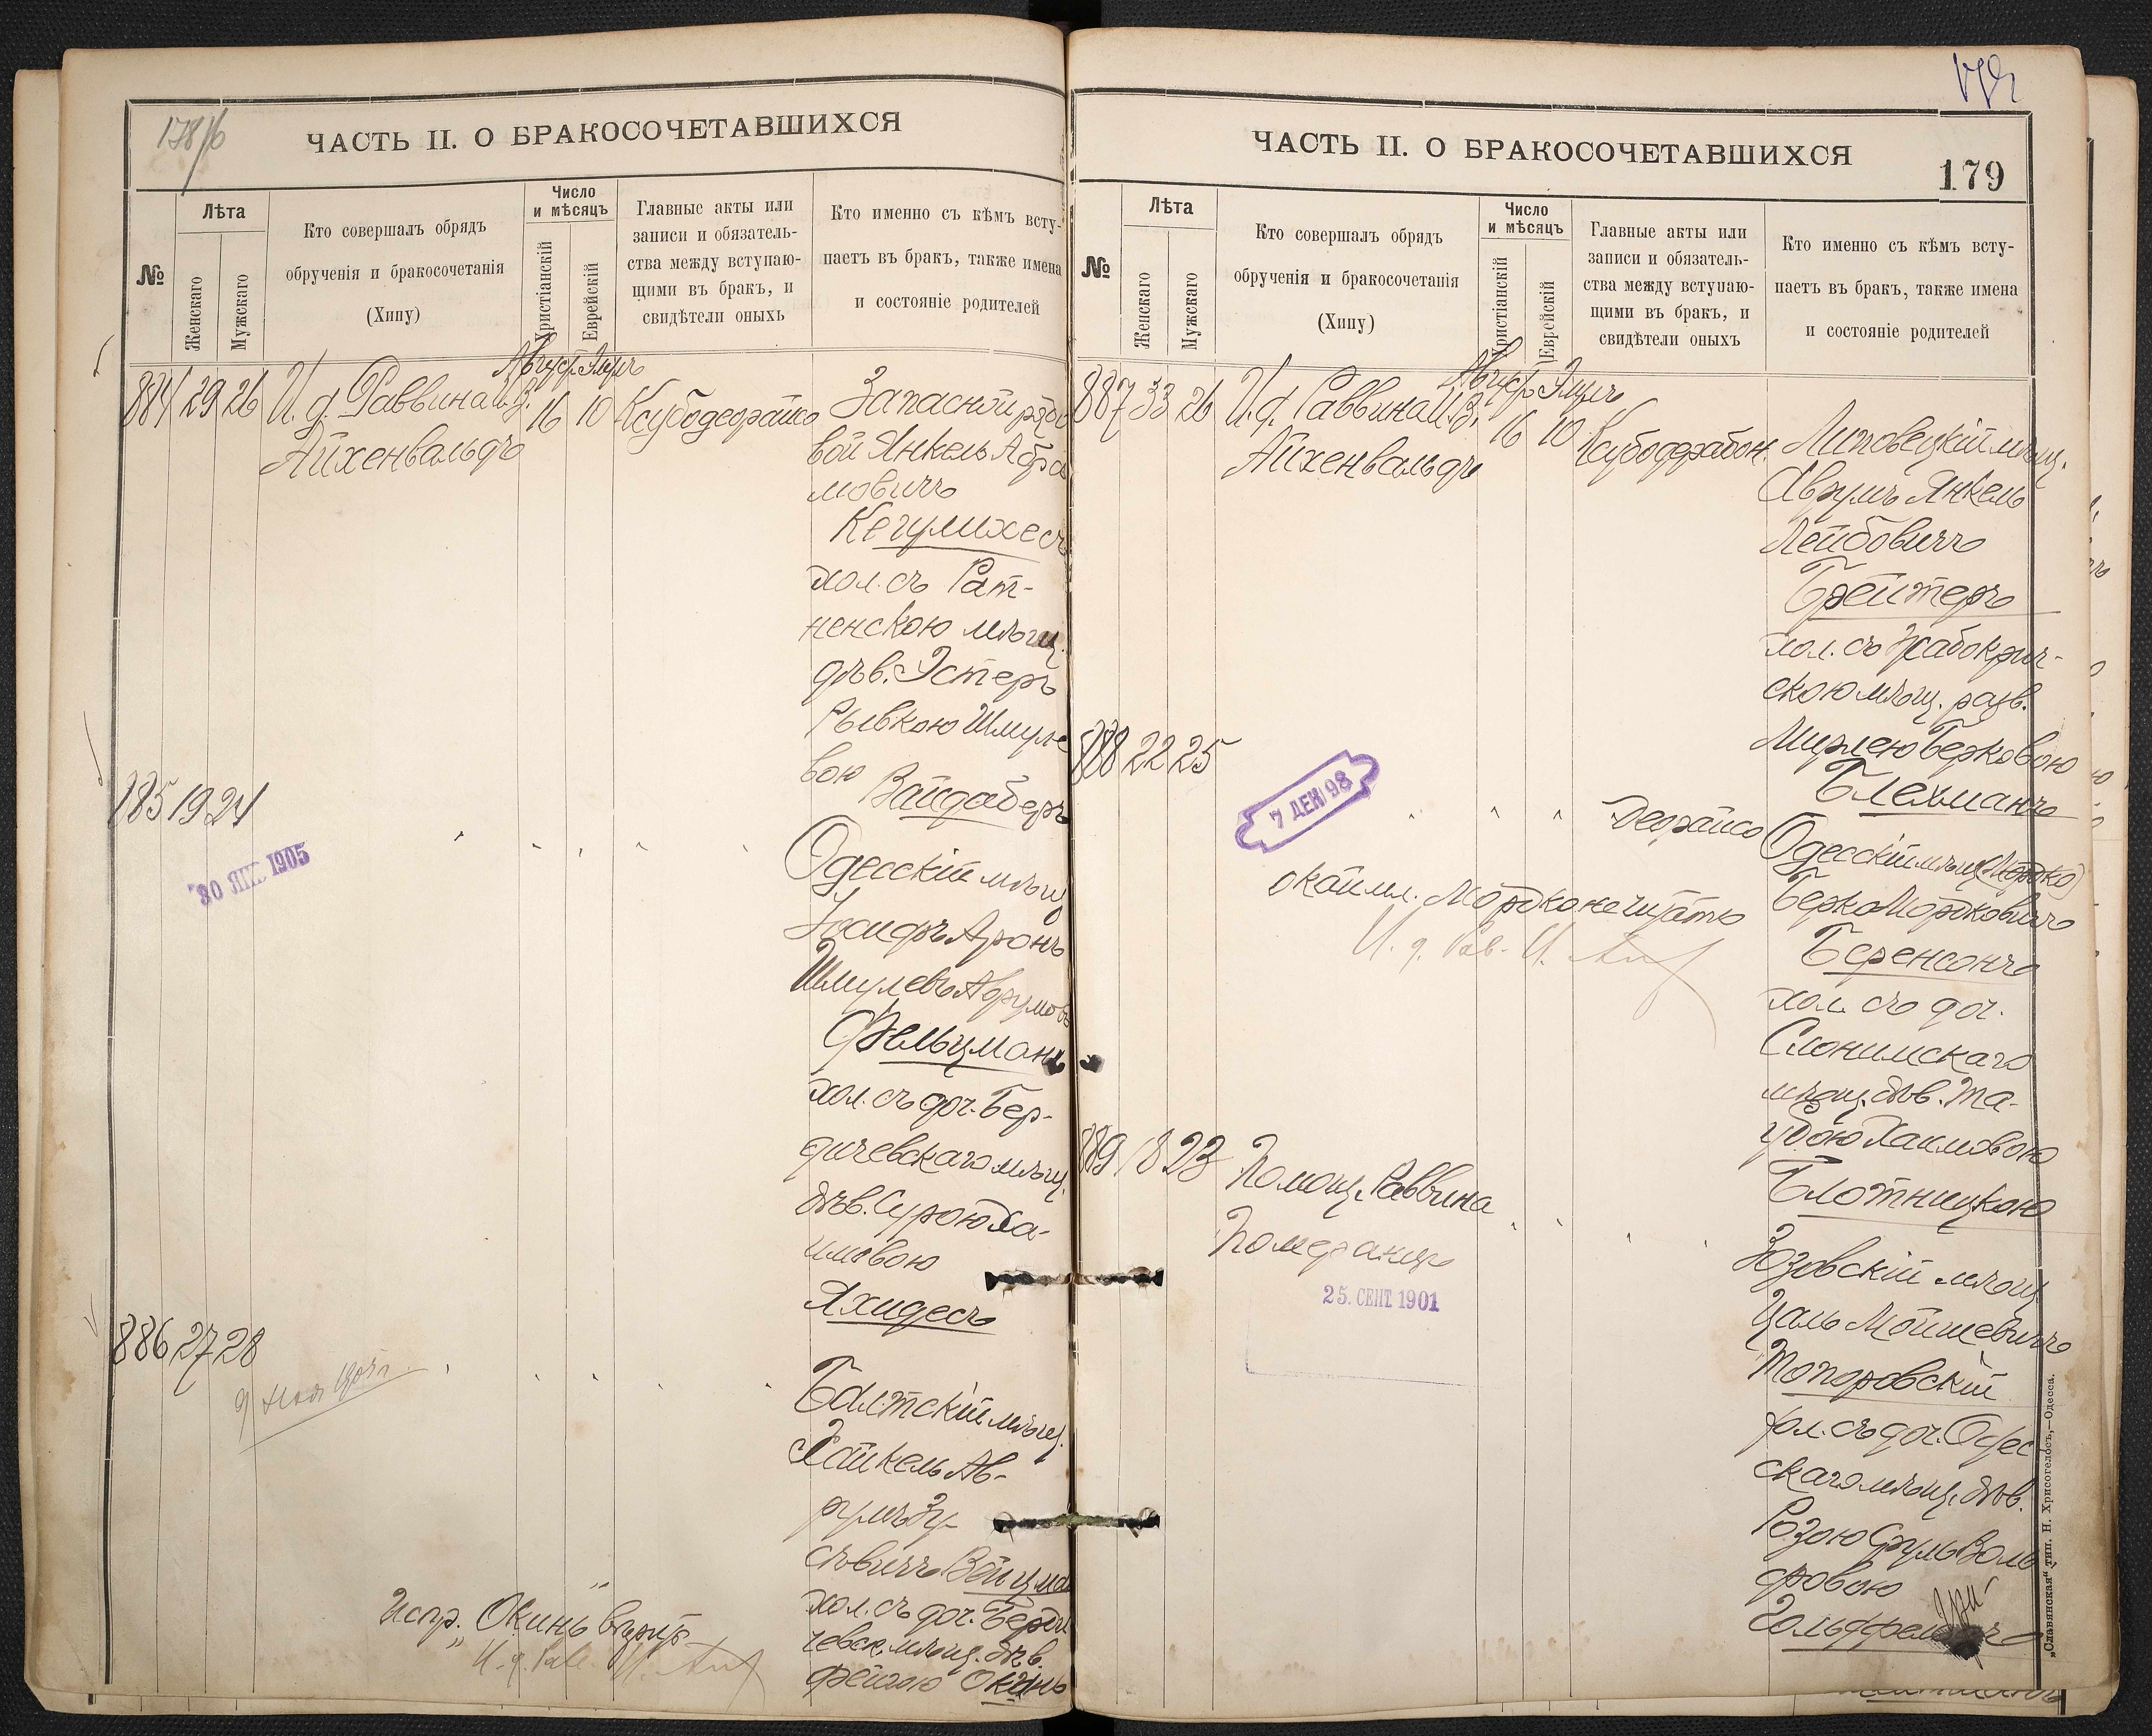 178/б
ЧАСТЬ II. О БРАКОСОЧЕТАВШИХСЯ
№
Лѣта
Женскаго
Мужскаго
Кто совершалъ обрядъ
обрученія и бракосочетанія
(Хипу)
Число
и мѣсяцъ
Христіанскій
Еврейскій
Главные акты или
записи и обязатель-
ства между вступаю-
щими въ бракъ, и
свидѣтели оныхъ
Кто именно съ кѣмъ всту-
паетъ въ бракъ, также имена
и состояніе родителей
884 29 26 И. д. Раввина
Айхенвальдъ
16 10
Запасной рядо
вой Янкель Абра
мовичъ
Кегулихесъ
хол. съ Рат-
ненскою мѣщ.
дѣв. Эстеръ
Рывкою Шмуле
вою Вайдаберъ
885 19 24
30 ЯНВ. 1905
Одесскій мѣщ
Аронъ
Шмулевъ Аврумов
Фельцманъ
хол. съ доч. Бер-
дичевскаго мѣщ.
дѣв. Сурою Ха-
имовою
Яхидесъ
886 27 28
Балтскій мѣщ.
Хайкель Ав-
румъ Зу-
севичъ Вайцма
хол. съ доч. Берди
чевск. мѣщ. дѣв.
Фейгою Окинь
Испр. "Окинь" вѣрить
И. д. Рав.
ЧАСТЬ II. О БРАКОСОЧЕТАВШИХСЯ
179
№
Лѣта
Женскаго
Мужскаго
Кто совершалъ обрядъ
обрученія и бракосочетанія
(Хипу)
Число
и мѣсяцъ
Христіанскій
Еврейскій
Главные акты или
записи и обязатель-
ства между вступаю-
щими въ бракъ, и
свидѣтели оныхъ
Кто именно съ кѣмъ всту-
паетъ въ бракъ, также имена
и состояніе родителей
887 33 26 И. д. Раввина
Айхенвальдъ
16 10
Липовецкій мѣщ.
Аврумъ Янкель
Лейбовичъ
Брейтеръ
хол. съ Жабокрич-
скою мѣщ. разв.
Мирлею Берковою
Блехманъ
888 22 25
7 ДЕК 98
Деорайсо
Одесскій мѣщ (Мордко)
Берко Мордковичъ
Беренсонъ
хол. съ доч.
Слонимскаго
мѣщ. дѣв. Та-
убою Хаимовою
Блотницкою
окаймл. Мордко не читать
И. д. Рав.
889 18 23 Помощ. Раввина
Померанцъ
25. СЕНТ. 1901
Юзовскій мѣщ
Цаль Мойшевичъ
Топоровскій
хол. съ доч. Одес
скаго мѣщ. дѣв.
Розою Сруль Воль
фовою
Гольдфельдъ
„Славянская" тип. Н. Хрисогелосъ,—Одесса.